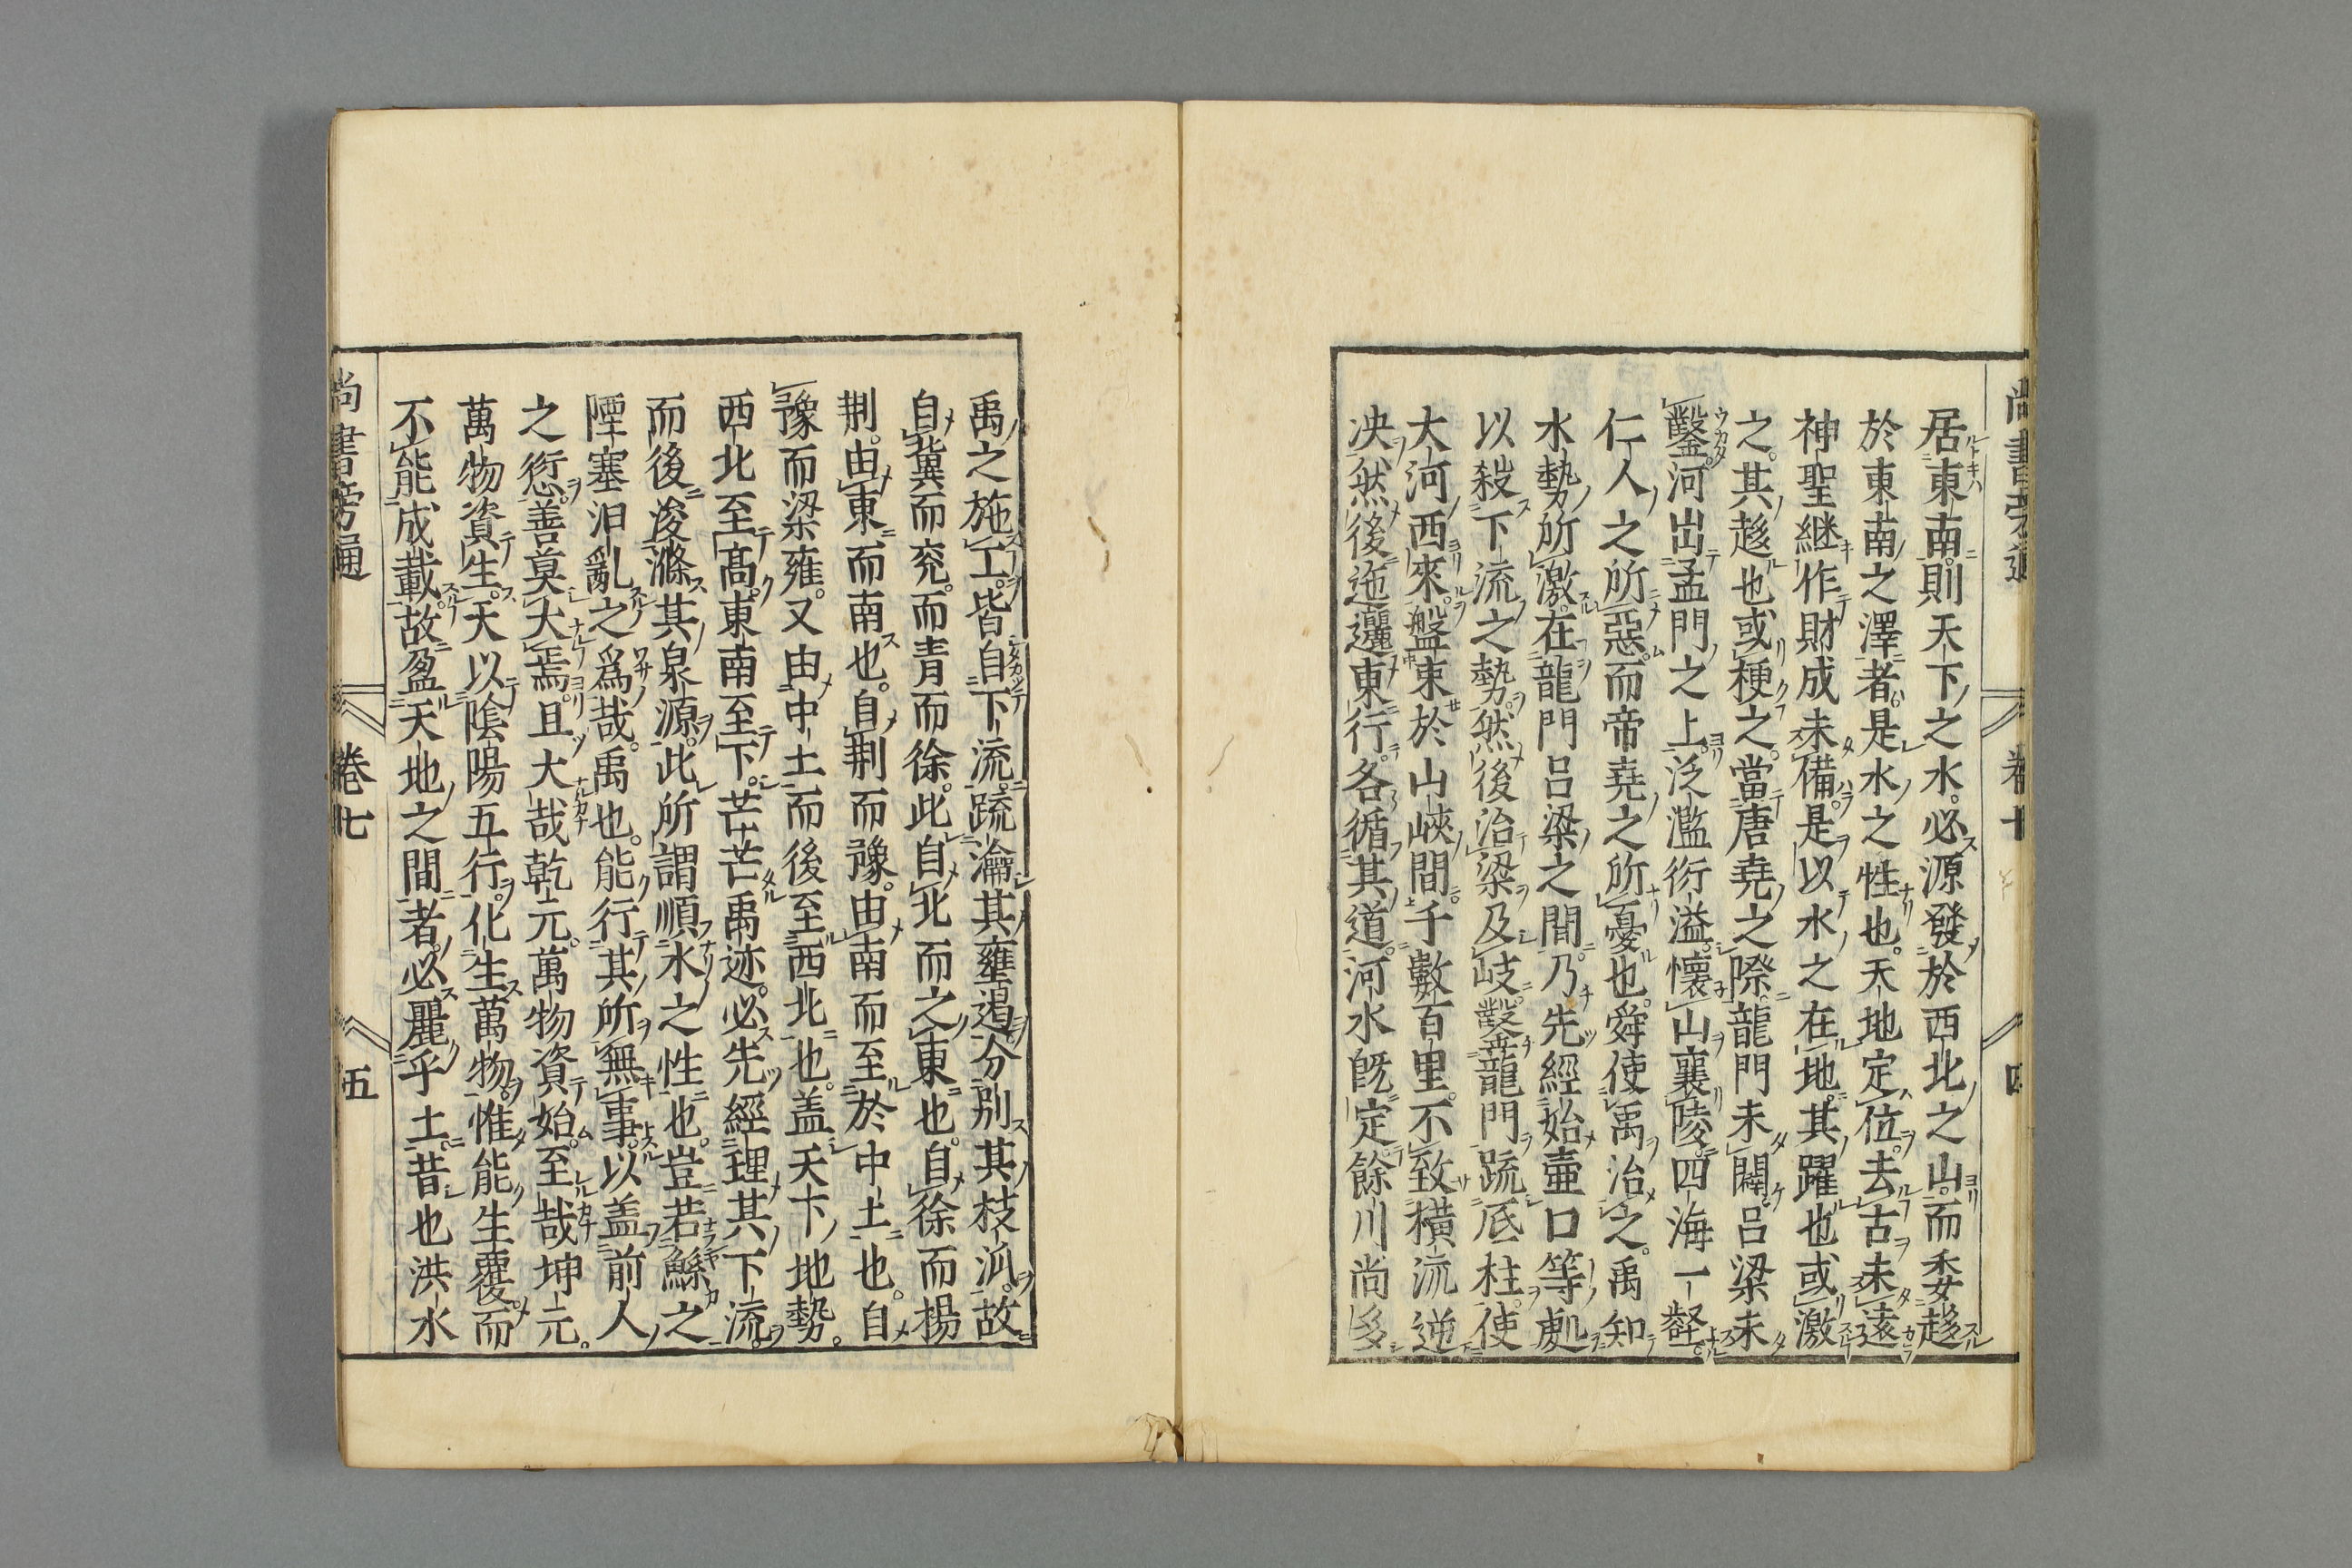 尚書旁通　卷七　四
居東南則天下之水必源發於西北之山而委趍
於東南之澤者是水之性也天地定位去古未遠
神聖継作財成未備是以水之在地其躍也或激
之其趍也或梗之當唐堯之際龍門未闢呂梁未
鑿河出孟門之上泛濫衍溢懷山襄陵四海一壑
仁人之所惡而帝堯之所憂也舜使禹治之禹知
水勢所激在龍門呂梁之間乃先經始壷口等處
以殺下流之勢然後治梁及岐鑿龍門疏厎柱使
大河西來盤束於山峽間千數百里不致橫流逆
决然後迤邐東行各循其道河水既定餘川尚多
禹之施工皆自下流疏瀹其壅遏分別其枝泒故
自冀而兖而青而徐此自北而之東也自徐而揚
荆由東而南也自荆而豫由南而至於中土也自
豫而梁雍又由中土而後至西北也盖天下地勢
西北至髙東南至下芒芒禹迹必先經理其下流
而後浚滌其泉源此所謂順水之性也豈若鯀之
陻塞汩亂之爲哉禹也能行其所無事以盖前人
之愆善莫大焉且大哉乾元萬物資始至哉坤元
萬物資生天以陰陽五行化生萬物惟能生覆而
不能成載故盈天地之間者必麗乎土昔也洪水
尚書旁通　卷七　五